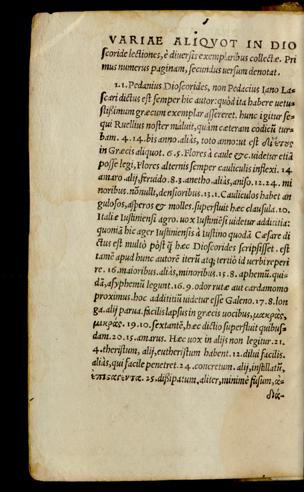 VARIAE ALIQVOT IN DIO
scoride lectiones, è diuersis exemplaribus collectæ. Pri
mus numerus paginam, secundus uersum denotat.
1.1. Pedanius Dioscorides, non Pedacius Iano La-
scari dictus est semper hic autor: quòd ita habere uetu-
stissimum græcum exemplar assereret. hunc igitur se-
qui Ruellius noster maluit, quàm cæteram codicũ tur-
bam. 4.14. bis anno. aliâs, toto anno: ut est
in Græcis aliquot. 6.5. Flores à caule &c. uidetur etiã
posse legi, Flores alternis semper cauliculis inflexi. 14
amaro. alij, feruido. 8.3. anetho. aliâs, aniso. 12.24. mi
noribus. nõnulli, densioribus. 13.1. Cauliculos habet an
gulosos, asperos & molles. superfluit hæc clausula. 10.
Italiæ Iustiniensi agro. uox Iustiniẽsi uidetur addititia:
quoniã hic ager Iustiniensis à Iustino quodã Cæsare di
ctus est multò pòst q̃ hæc Dioscorides scripsisset. est
tamẽ apud hunc autorẽ iterũ atq; tertiò id uerbi reperi
re. 16. maioribus. aliâs, minoribus. 15.8. aphemũ. qui-
dã, asphemũ legunt. 16.9. odor rutæ aut cardamomo
proximus. hoc addititiũ uidetur esse Galeno. 17.8. lon
ga. alij parua. facilis lapsus in græcis uocibus, μακρὰς,
μικρὰς. 19.10. sextantẽ, hæc dictio superfluit quibus-
dam. 20.15. amarus. Hæc uox in alijs non legitur. 21.
4. theristrum, alij, eutheristrum habent. 12. dilui facilis.
aliâs, qui facile penetret. 24. concretum. alij, instillatũ,
25. dissipatum, aliter, minimè fusum, ἀ-
διά-